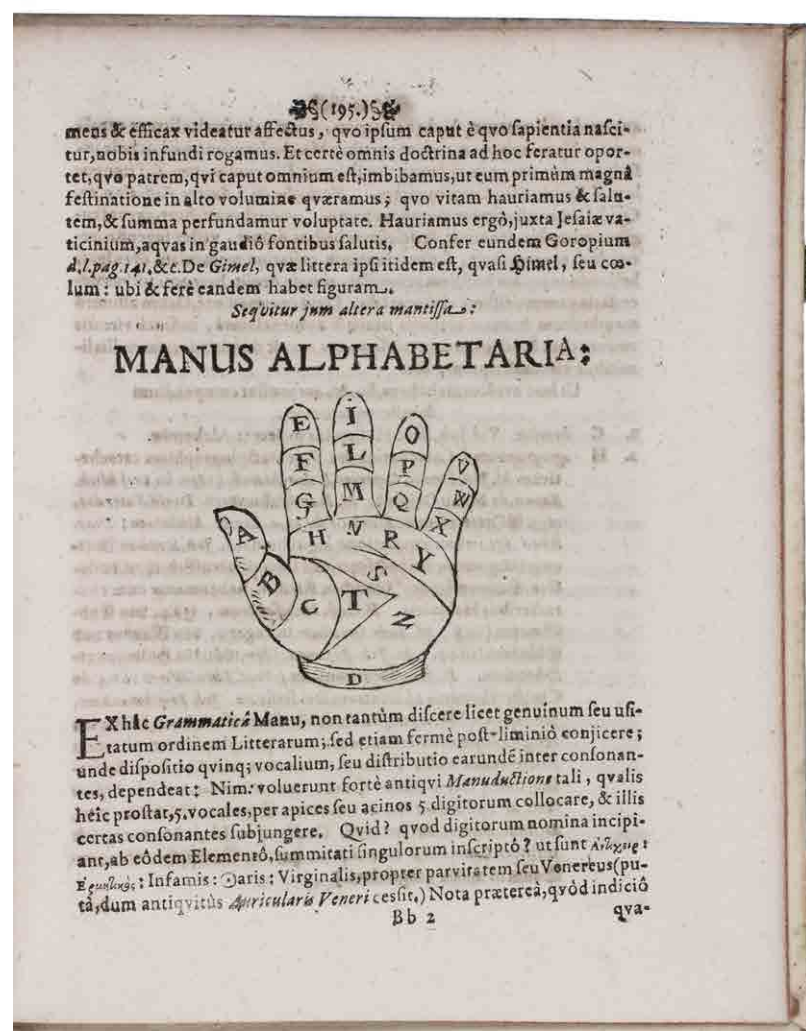 (195.)
mens & efficax videatur affectus, qvo ipſum caput è qvo ſapientia naſci-
tur, nobis infundi rogamus. Et certè omnis doctrina ad hoc feratur opor-
tet, qvo patrem, qvi caput omnium eſt, imbibamus, ut eum primùm magnâ
feſtinatione in alto volumine qværamus; qvo vitam hauriamus & ſalu-
tem, & ſumma perfundamur voluptate. Hauriamus ergò, juxta Jeſaiæ va-
ticinium, aqvas in gaudiô fontibus ſalutis. Confer eundem Goropium
d. l. pag. 141. &c. De Gimel, qvæ littera ipſi itidem eſt, quaſi Himel, ſeu cœ-
lum: ubi & ferè eandem habet figuram.
Seqvitur jam altera mantiſſa:
MANUS ALPHABETARIA:
E I O
F L P V
G M Q W
A H N R X
B S Y
C T Z
D
EX hâc Grammaticâ Manu, non tantùm diſcere licet genuinum ſeu uſi-
tatum ordinem Litterarum; ſed etiam fermè poſt-liminiò conjicere;
unde diſpoſitio qvinq; vocalium, ſeu diſtributio earundẽ inter conſonan-
tes, dependeat: Nim: voluerunt fortè antiqvi Manuductione tali, qvalis
hêic proſtat, 5. vocales, per apices ſeu acinos 5 digitorum collocare, & illis
certas conſonantes ſubjungere. Qvid? qvod digitorum nomina incipi-
ant, ab eôdem Elementô, ſummitati ſingulorum inſcriptô? ut ſunt
: Infamis: aris: Virginalis, propter parvitatem ſeu Venereus (pu-
tà, dum antiqvitùs Auricularis Veneri ceſſit.) Nota prætereà, qvòd indiciô
Bb 2 qva-